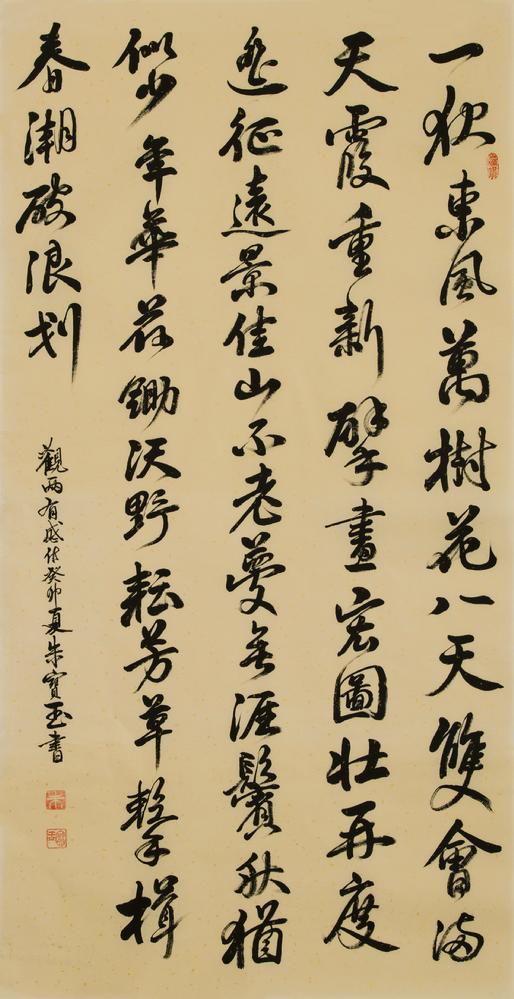 一夜東風萬樹花八天雙會满
天霞重新擘畫宏圖壯再度
登征遠景佳山不老夢無涯鬢秋猶
似少年華荷鋤沃野耘芳草擊楫
春潮破浪划
觀兩有感作癸卯夏朱寶玉書